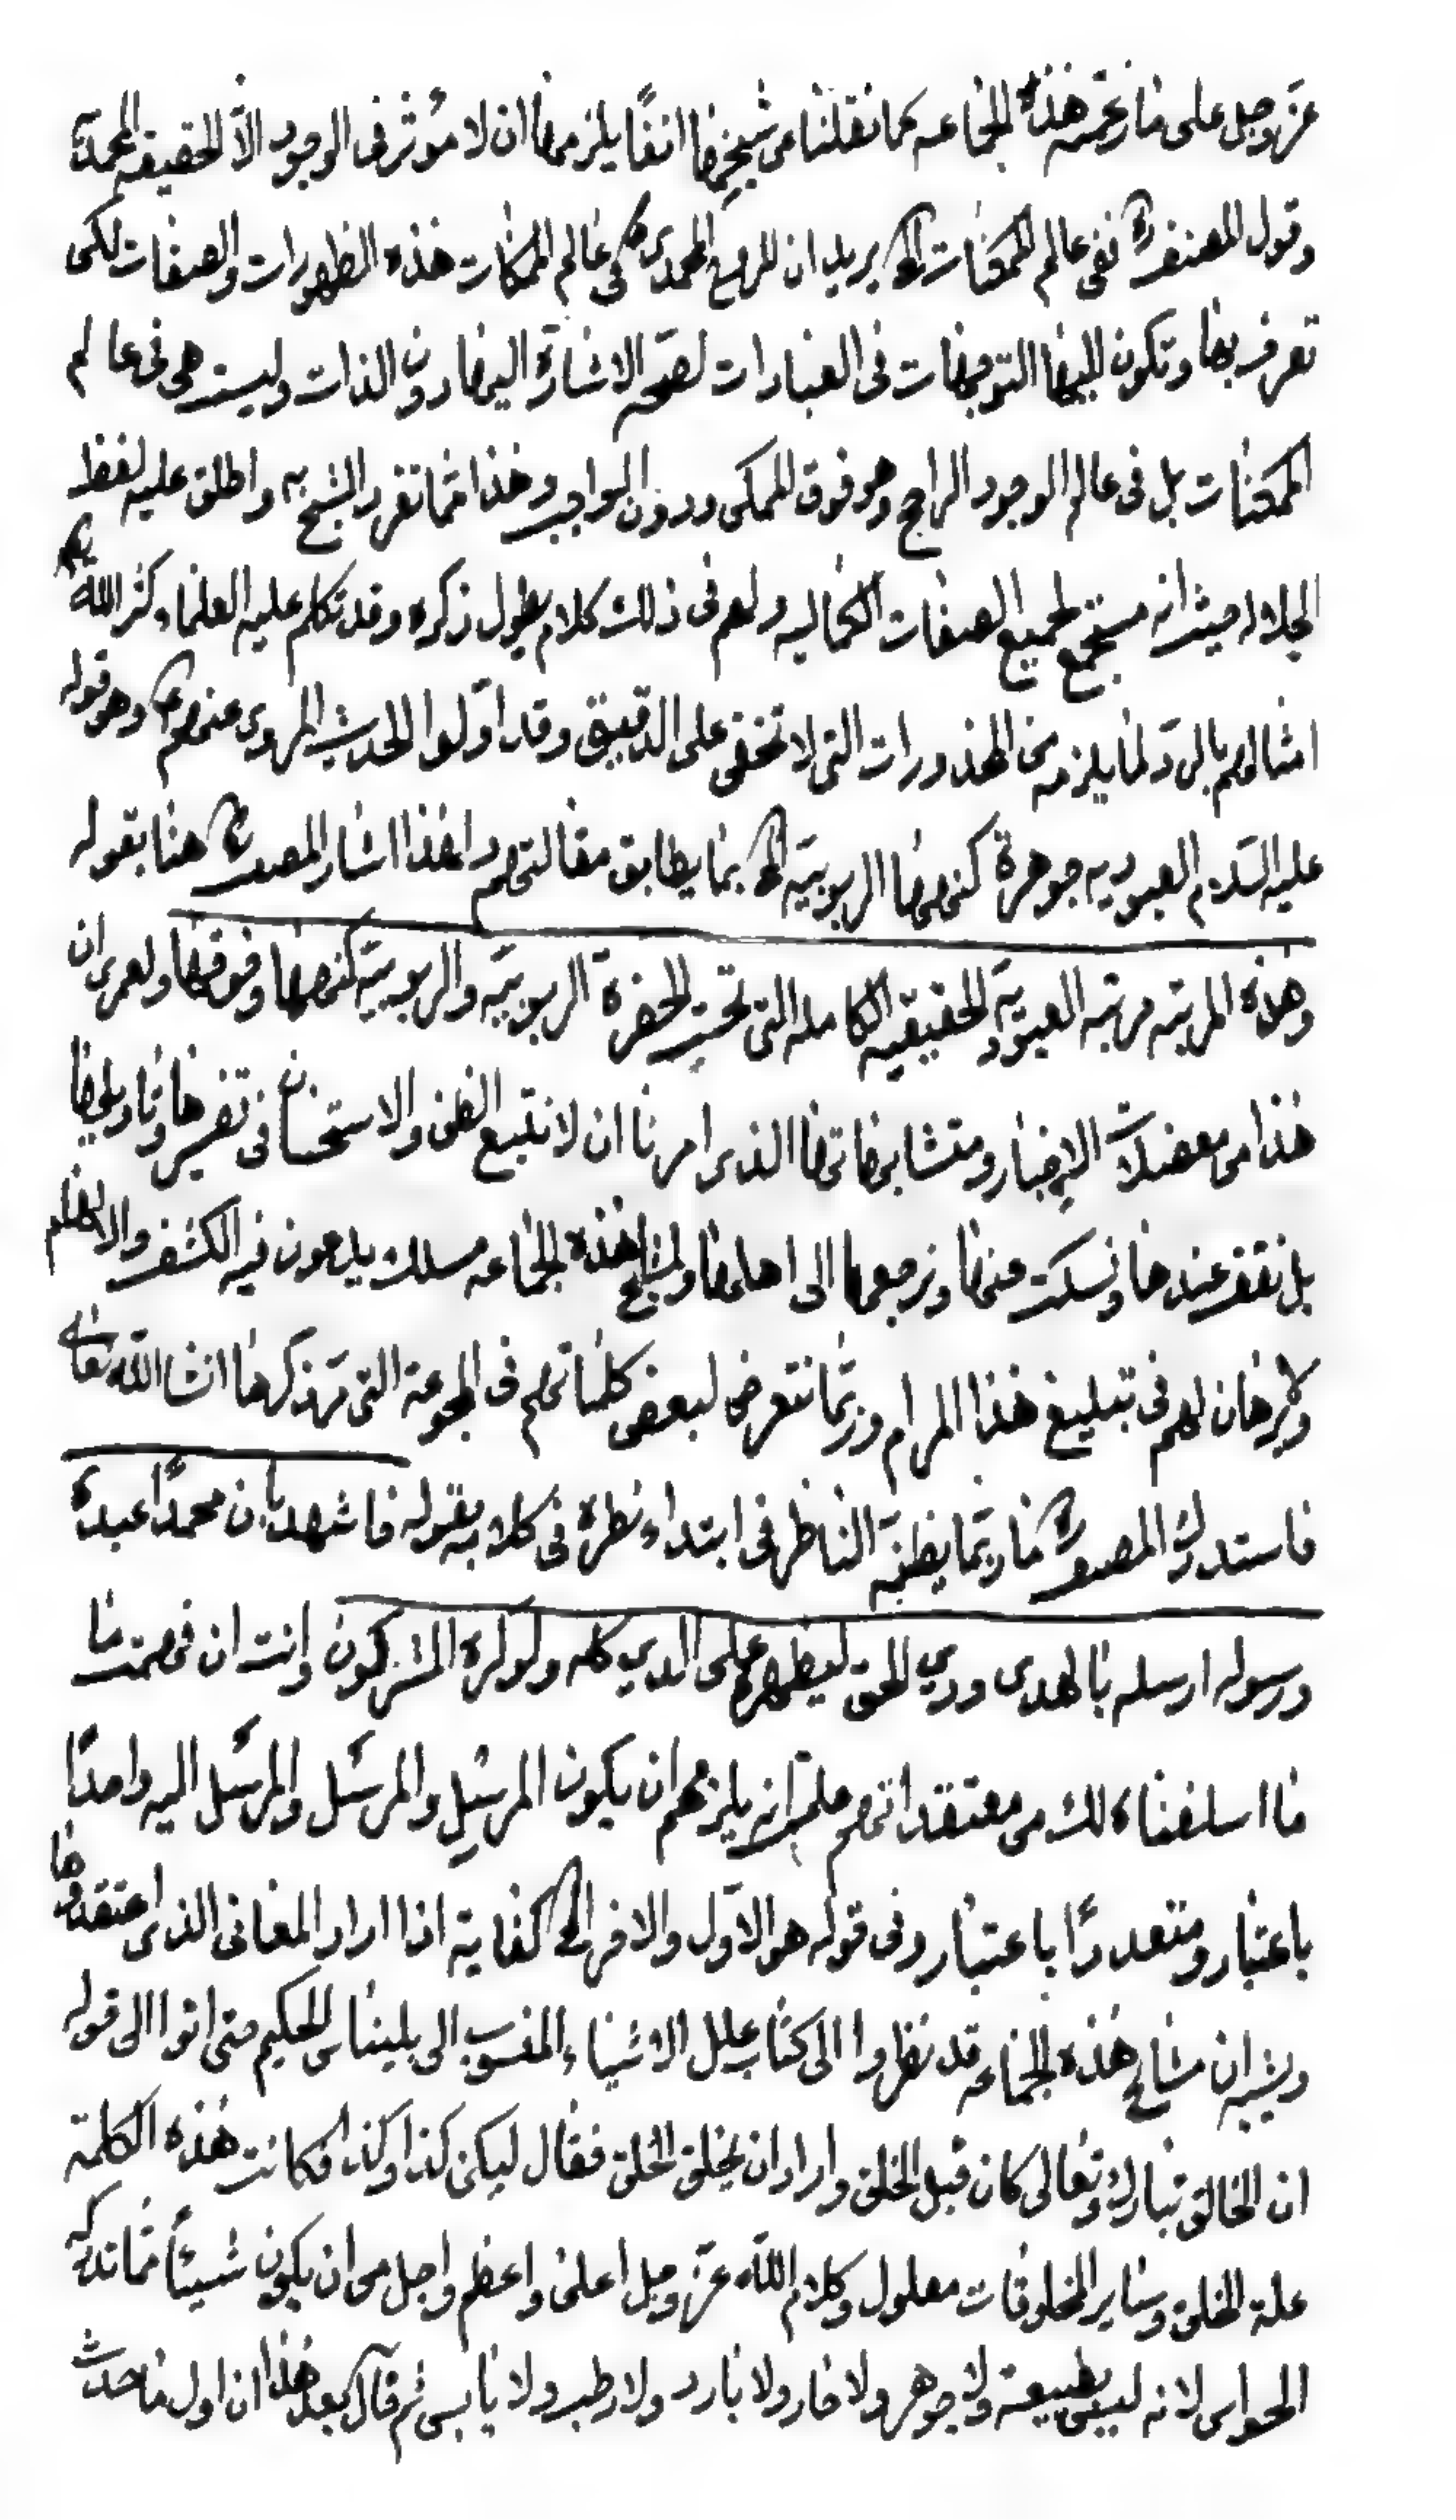 عزّ وجل على ما زعمه هذه الجماعه كما نقلنا من شيخها انفًا يلزمها ان لا مؤثر فى الوجود الّا الحقيقه المحمديّة
وقول المصنف ره ففى عالم الممكنات الخ يريد ان للروح المحمدى ص فى عالم الممكنات هذه الظهورات والصفات لكى
تعرف بها وتكون اليها التوجهات فى العبادات لصحّه الاشارة اليها دون الذات وليست هى فى عالم
الممكنات بل فى عالم الوجود الراجح وهو فوق الممكن ودون الواجب وهذا ممّا تفرد الشيخ به واطلق عليه لفظ
الجلاله حيث انه مستجمع لجميع الصفات الكماليه ولهم فى ذلك كلام يطول ذكره وقد تكلم عليه العلماء كثر الله
امثالهم بالردّ لما يلزمه من المحذورات التى لا تخفى على الدقيق وقد اوّلوا الحديث المروى عنهم ع وهو قوله
عليه السّلام العبوديه جوهرة كنهها الربوبيّه الخ بما يطابق مقالتهم ولهذا اشار المصنف ره هنا بقوله
وهذه المرتبه مرتبه العبوديّه الحقيقيه الكامله التى تحت الحضرة الربوبيّه والربوبيّة كنهها وفوقها ولعمرى ان
هذا من معضلات الاخبار ومتشابهاتها الذى امرنا ان لا نتبع الظن والاستحسان فى تفسيرها وتاويلها
بل نقف عندها ونسكت عنها ونرجعها الى اهلها ولمشايخ هذه الجماعه مسلك يدعون فيه الكشف والالهام
ولا برهان لهم فى تبليغ هذا المرام وربّما نتعرض لبعض كلماتهم فى المجموعة التى مرّ ذكرها انشا الله تعالى
فاستدرك المصنف ره ما ربّما يظنّه الناظر فى ابتداء نظره فى كلامه بقوله فاشهد بان محمدًا عبده
ورسوله ارسله بالهدى ودين الحق ليظهره على الدين كله ولو كره المشركون وانت ان فهمت ما
ما اسلفناه لك من معتقداتهم علمت انه يلزمهم ان يكون المرسِل والمرسَل والمرسَل اليه واحدًا
باعتبار ومتعددًا باعتبار وفى قوله هو الاوّل والاخر الخ كفاية اذا اراد المعانى الذى اعتقدوها
ويشبه ان مشايخ هذه الجماعه قد نظروا الى كتاب علل الاشياء المنسوب الى بليناس الحكيم حتى اتوا الى قوله
ان الخالق تبارك وتعالى كان قبل الخلق واراد ان يخلق الخلق فقال ليكن كذا وكذا فكانت هذه الكلمة
علة الخلق وساير المخلوقات معلول وكلام الله عزّ وجل اعلى واعظم واجل من ان يكون شيئًا ممّا تدركه
الحواس لانه ليس بطبيعة ولا جوهر ولا حار ولا بارد ولا رطب ولا يابس ثم قال بعد هذا ان اول ما حدث